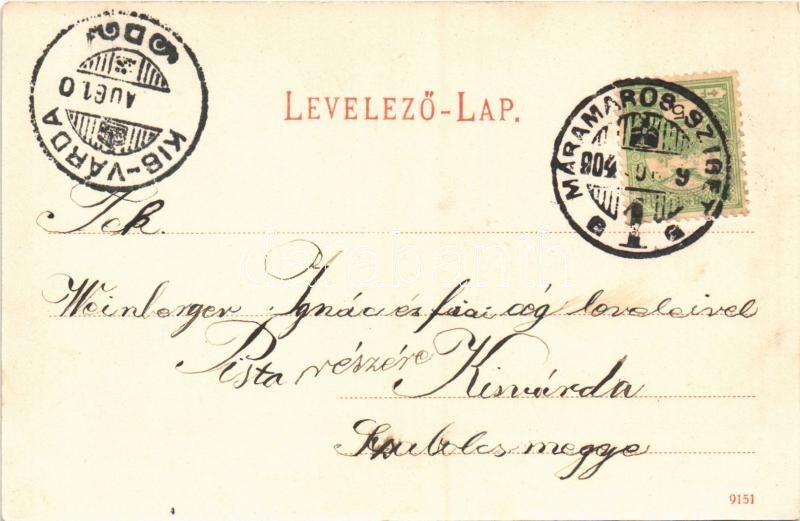 KIS-VÁRDA
AUG 10
LEVELEZŐ-LAP.
MÁRAMAROS-SZIGET
904
Tek.
Weinberger Ignác és fiai cég leveleivel
Pista részére Kisvárda
Szabolcsmegye
9151